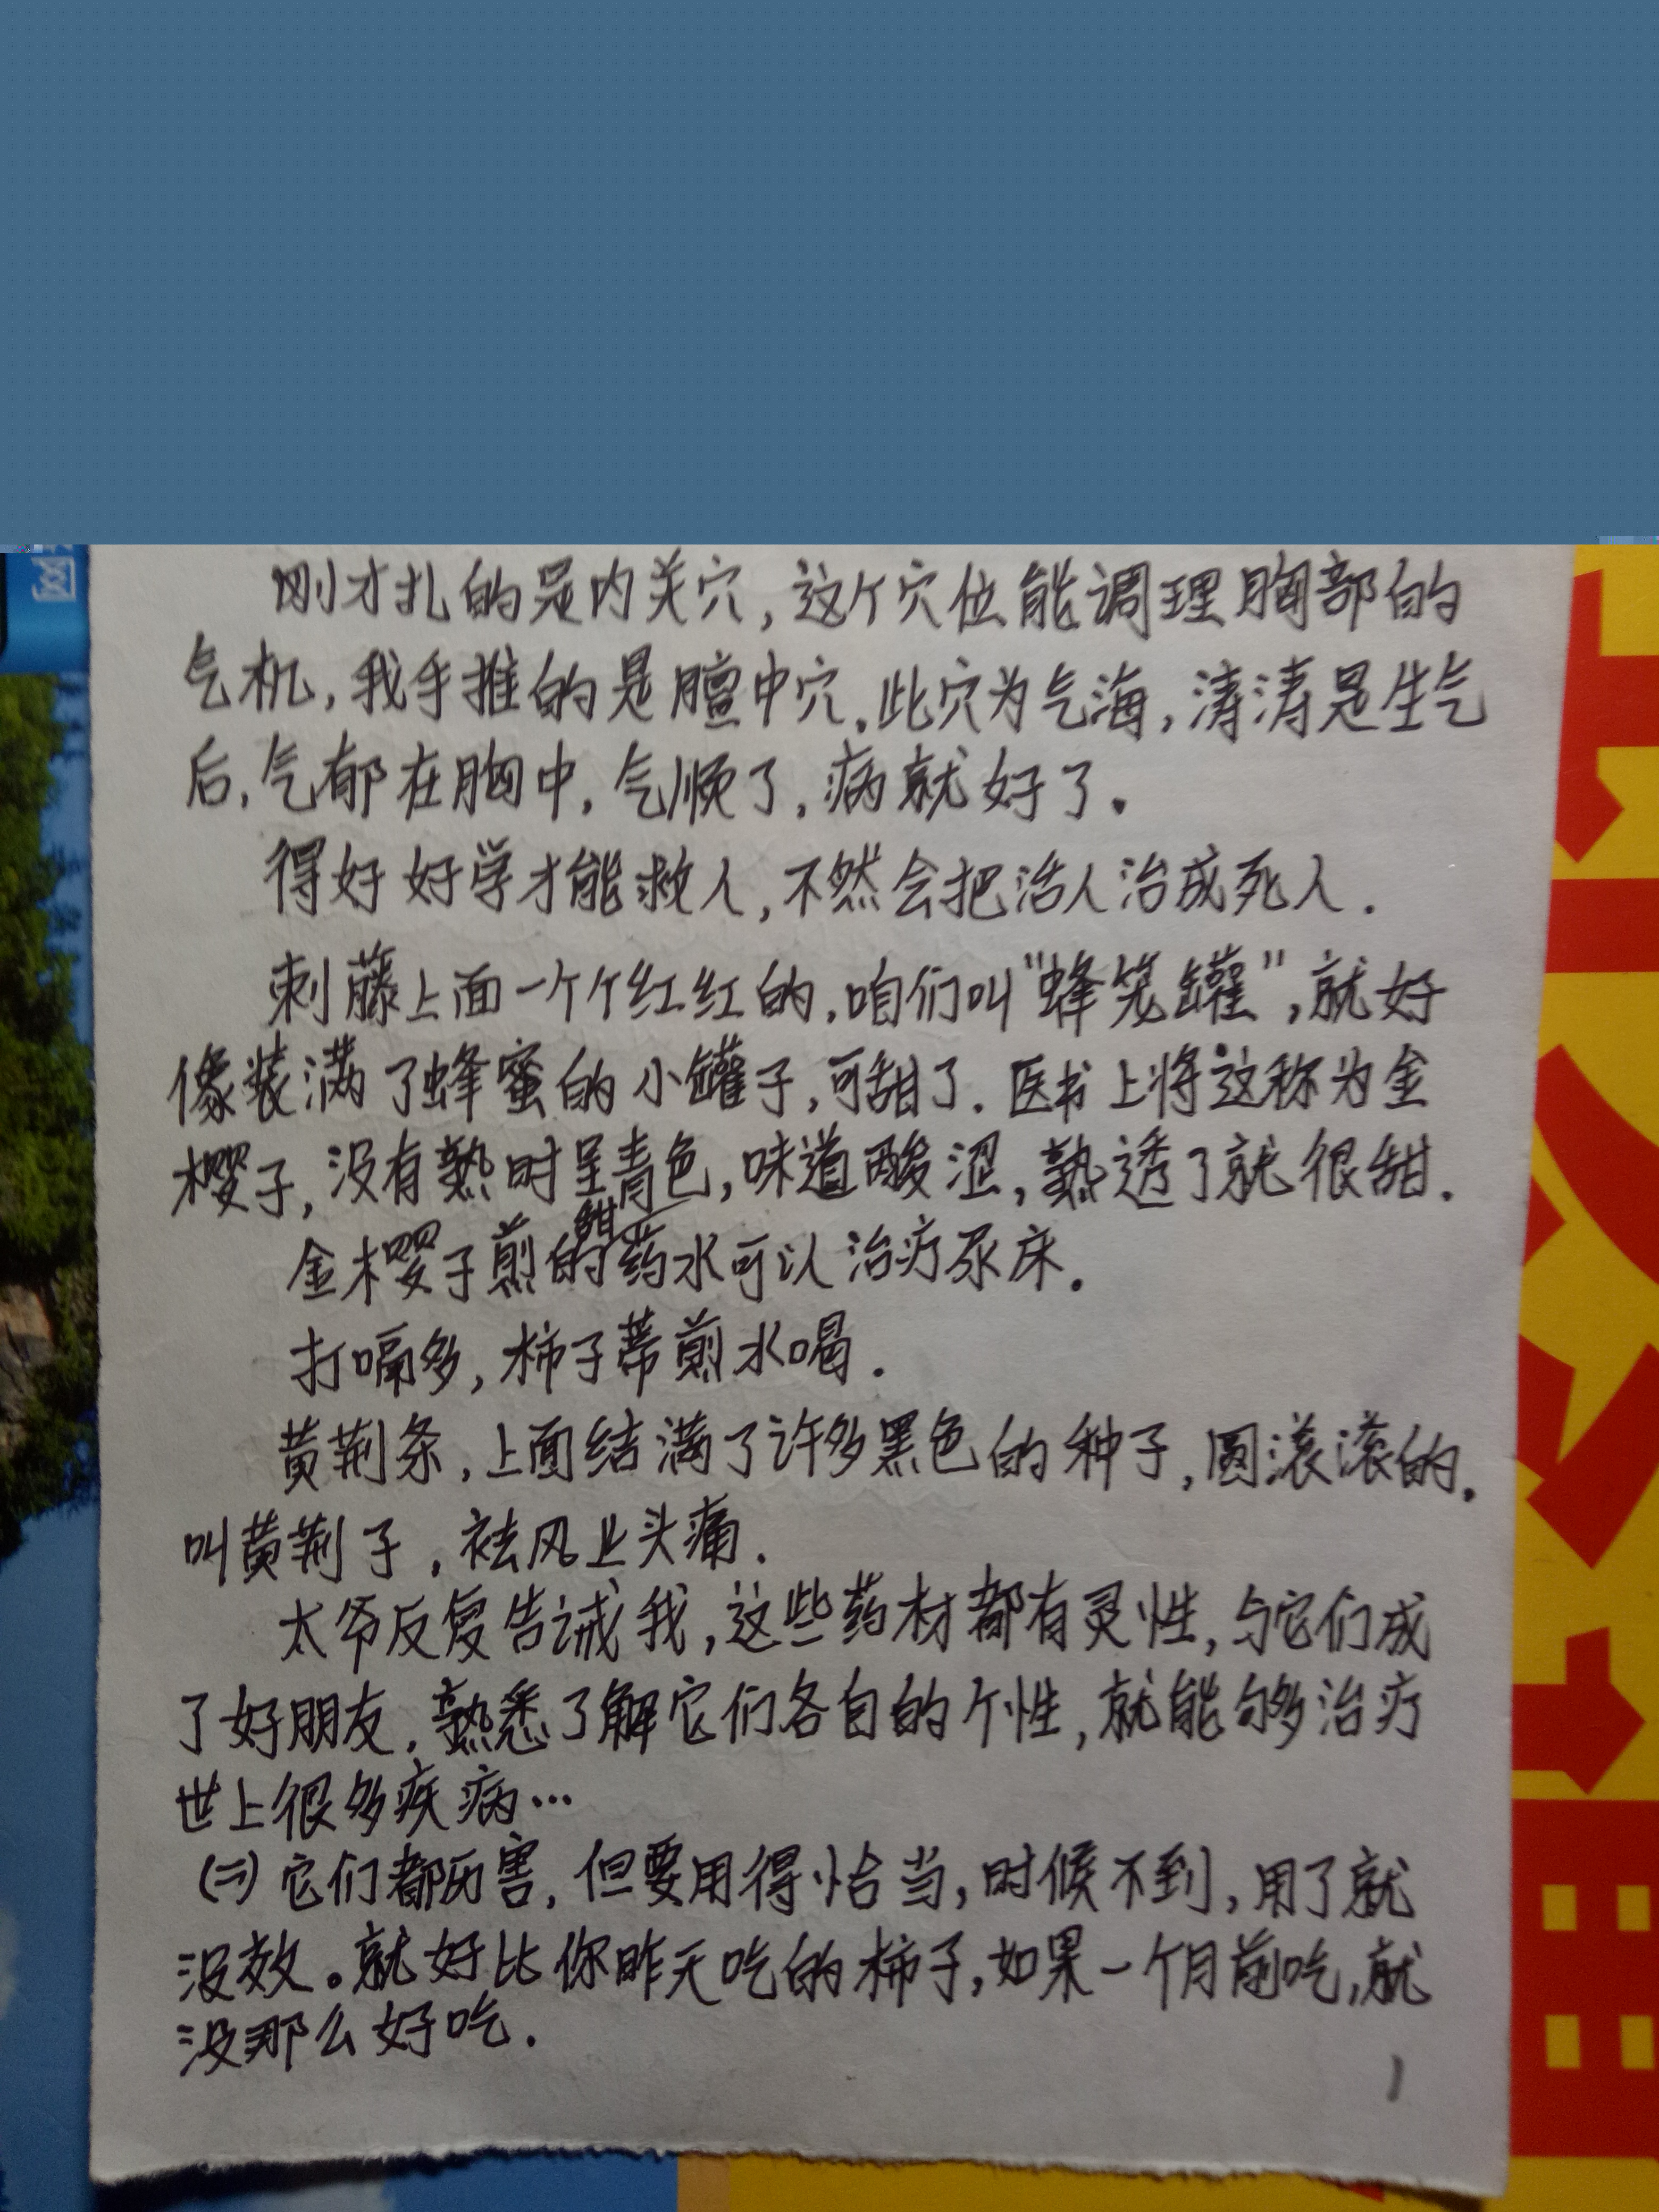 刚才扎的是内关穴,这个穴位能调理胸部的
气机,我手推的是膻中穴,此穴为气海,涛涛是生气
后,气郁在胸中,气顺了,病就好了。
得好好学才能救人,不然会把活人治成死人.
刺藤上面一个个红红的,咱们叫"蜂笼罐",就好
像装满了蜂蜜的小罐子,可甜了.医书上将这称为金
樱子,没有熟时呈青色,味道酸涩,熟透了就很甜.
甜
金樱子煎的药水可以治疗尿床.
打嗝多,柿子蒂煎水喝.
黄荆条,上面结满了许多黑色的种子,圆滚滚的.
叫黄荆子,祛风止头痛.
太爷反复告诫我,这些药材都有灵性,与它们成
了好朋友,熟悉了解它们各自的个性,就能够治疗
世上很多疾病…
(二)它们都厉害,但要用得恰当,时候不到,用了就
没效。就好比你昨天吃的柿子,如果一个月前吃,就
没那么好吃.
1